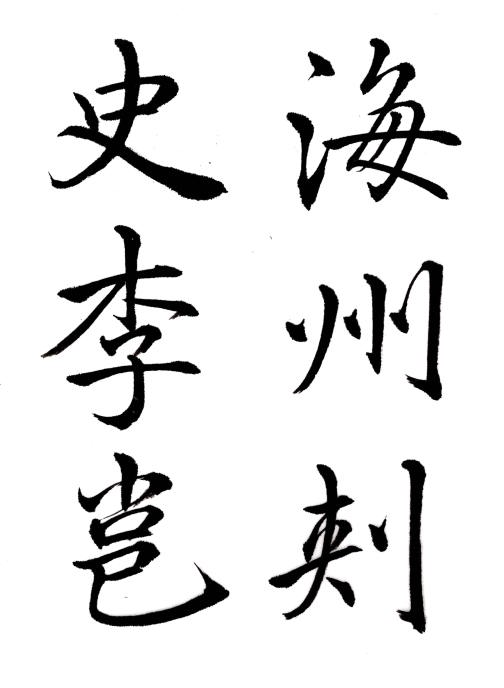 海州刺
史李邕